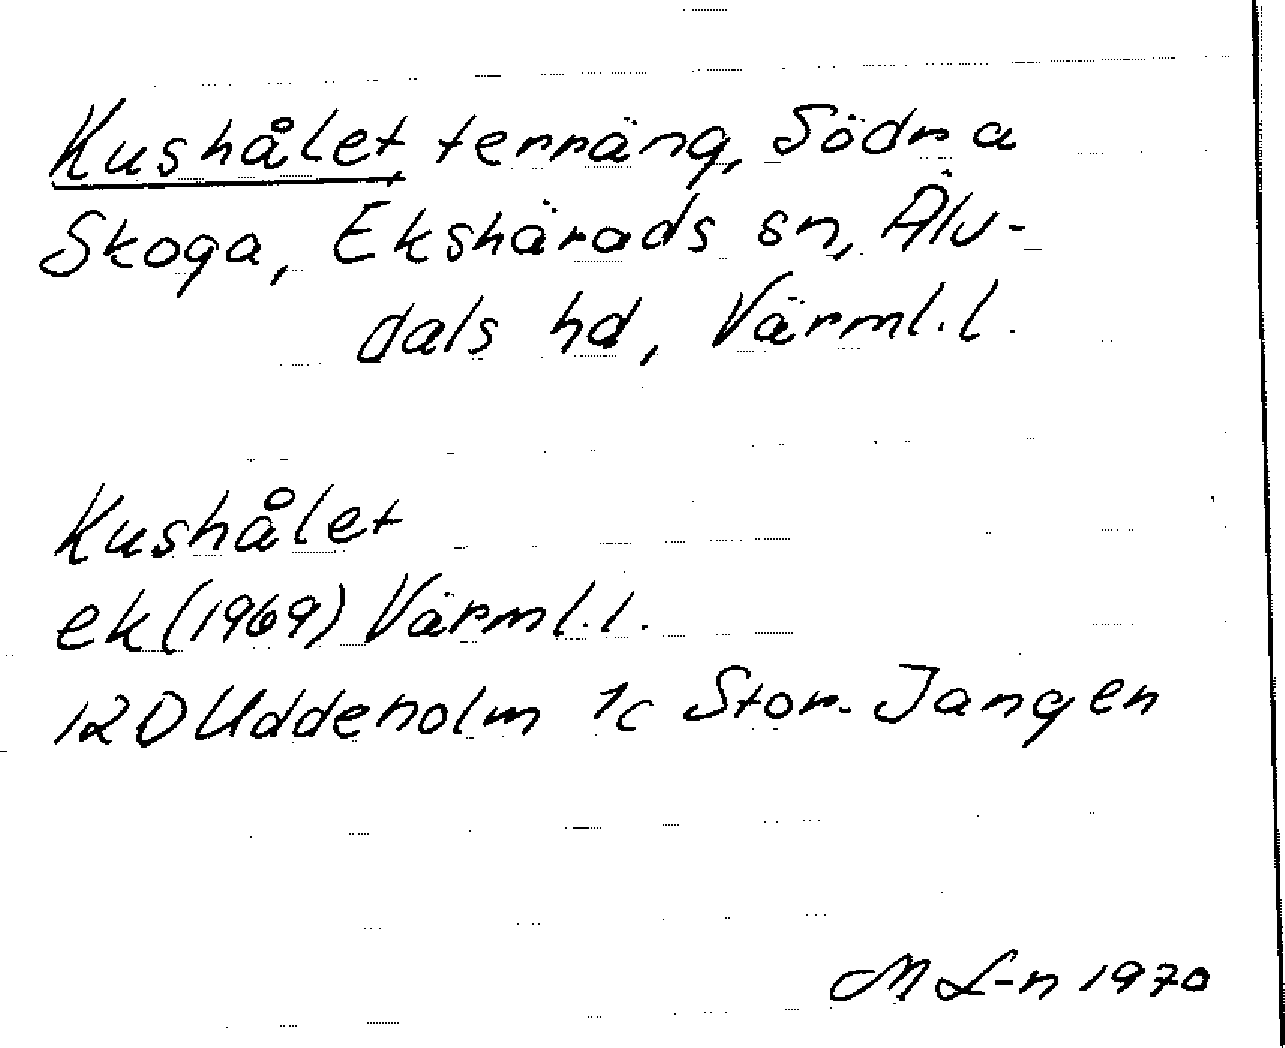 Kushålet, terräng, Södra
Skoga, Ekshärads sn, Älv-
dals hd, Värml.l.
Kushålet
ek (1969) Värml.l.
12D Uddeholm 1c Stor-Jangen
M L-n 1970